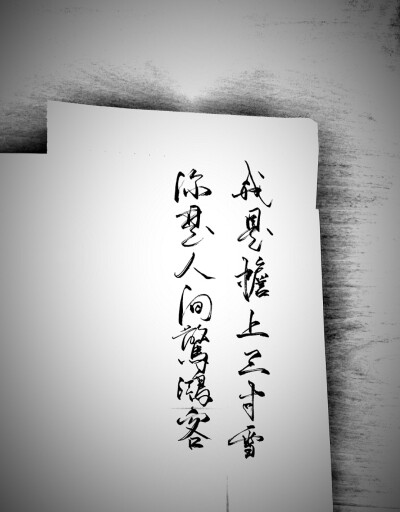 我是檐上三寸雪
你是人间驚鴻客